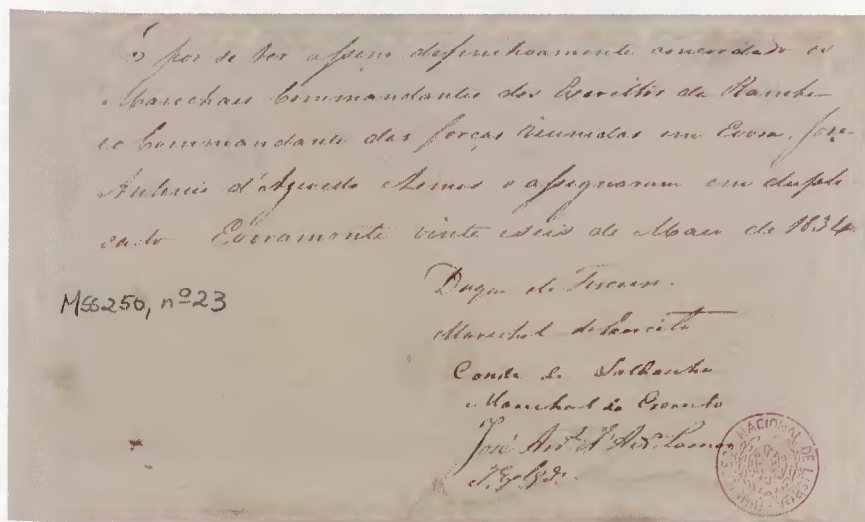 E por se ter assim definitivamente concordado os
Marechaes Commandantes dos Exercitos da Rainha
e o Commandante das forças reunidas em Evora, José
Antonio d'Azevedo Lemos o assignaram em dupli-
cado Evoramonte vinte e seis de Maio de 1834
Duque da Terceira.
Marechal do Exercito
Conde de Saldanha
Marechal do Exercito
José Ant.º d'Az.do Lemos
Mss 250, nº 23
NACIONAL DE LISBOA